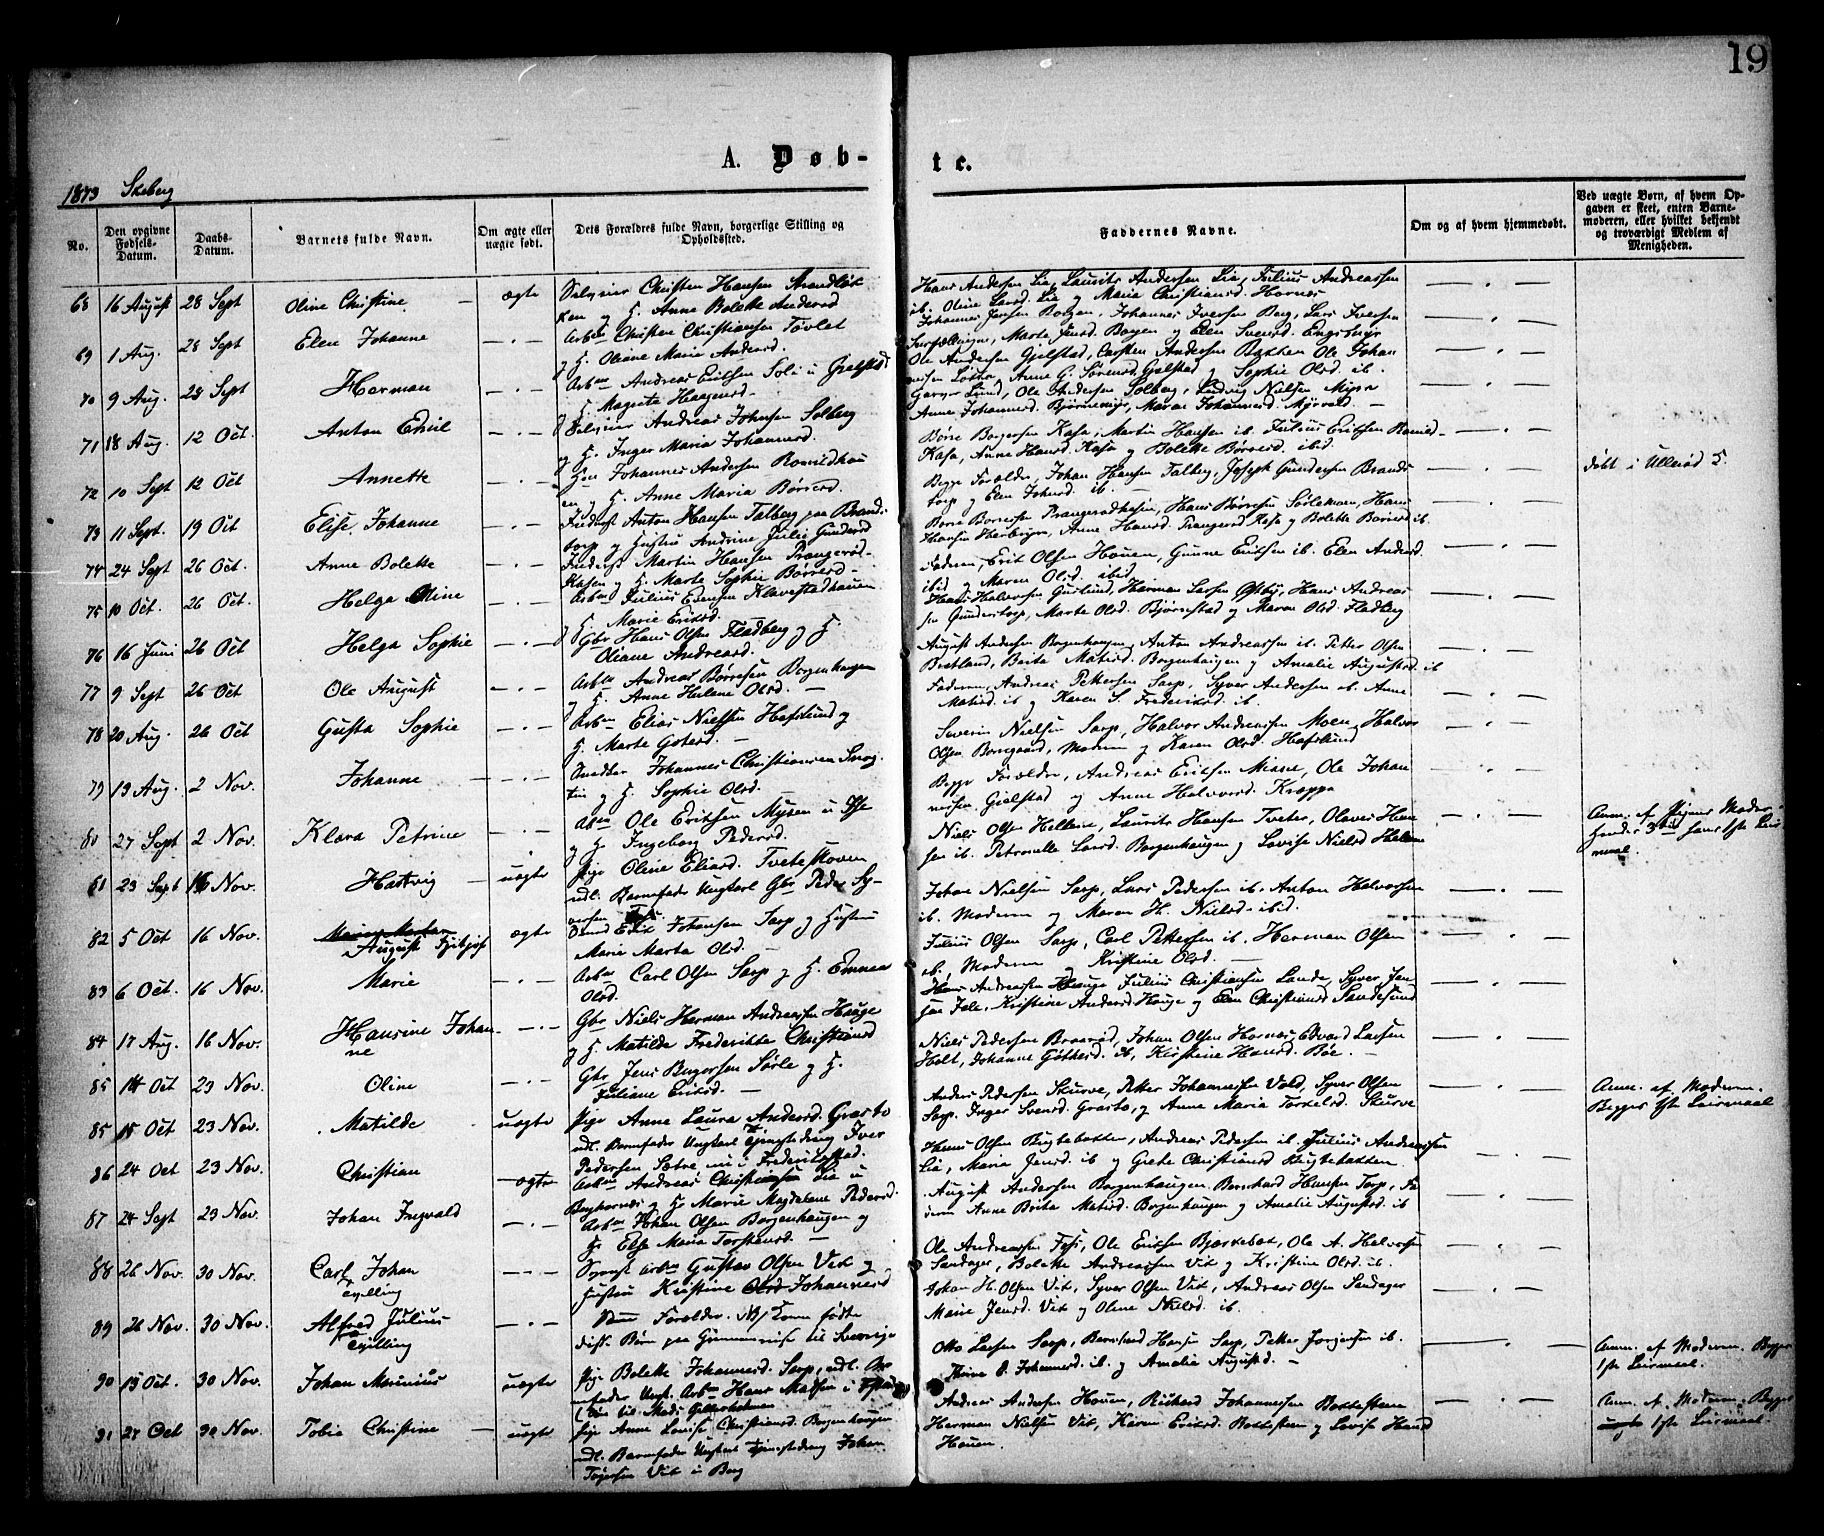 19
A. Døb-
te.
1873 Skeberg
No.
Den opgivne Fødsels-Datum.
Daabs-Datum.
Barnets fulde Navn.
Om ægte eller uægte født.
Dets Forældres fulde Navn, borgerlige Stilling og Opholdssted.
Faddernes Navne.
Om og af hvem hjemmedøbt.
Ved uægte Børn, af hvem Opgaven er skeet, enten Barnemoderen, eller hvilket bekjendt og troværdigt Medlem af Menigheden.
68 16 August 28 Sept Oline Christine ægte Selveier Christen Hansen Strandløk
ken og H. Anne Bolette Andersd
Hans Andersen Lie, Laurits Andersen Lie, Julius Andreassen
ib. Oline Larsd. Lie og Maria Christiansd. Hornes
69 1 Aug. 28 Sept Elen Johanne Arbm Christen Christiansen Tøvlet
og H. Oliane Marie Andersd.
Johannes Jensen Borgen, Johannes Iversen Berg, Lars Iversen
Marte Jensd. Borgen og Elen Svensd. Engsmyr
70 9 Aug. 28 Sept Herman Arbm Andreas Erichsen Soli u Gjelstad
H. Magrete Haagensd.
Ole Andersen Gjelstad, Carsten Andersen Bakken Ole Johan
nesen Anne G. Sørensd. Gjelstad og Sophie Olsd. ib.
71 18 Aug. 12 Oct. Anton Emil Selveier Andreas Johnsen Solberg
og H. Inger Maria Johannesd.
Lund, Ole Andersen Solberg, Ludvig Nielsen Myra
Anne Johannesd. Bjørnemyr, Maren Johannesd. Myrvold.
72 10 Sept 12 Oct Annette Johannes Andersen Romildhau
en og H. Anne Maria Børresd.
Børre Borgersen Kasa, Martin Hansen ib. Julius Erichsen Romild
Kasa, Anne Hansd. Kasa og Bolette Børresd. ibid
døbt i Ullerød K.
73 11 Sept. 19 Oct Elise Johanne Inderst Anton Hansen Talberg paa Brands
torp og Hustru Andrine Julie Gundersd
Begge Forældre, Johan Hansen Talberg, Joseph Gundersen Brands
torp og Elen Johnsd. ib.
74 24 Sept 26 Oct. Anne Bolette Inderst Martin Hansen Prangerød-
Kasen og H. Marte Sophie Børresd.
Børre Borresen Prangerødkasen, Hans Børresen Sølemoen, Hans
Hansen Herbergen, Anne Hansd. Prangerød Kasa og Bolette Borresd ib.
75 10 Oct. 26 Oct. Helga Oline Arbm Julius Evensen Klavestadhauen
H. Marie Eriksd.
Faderen, Erik Olsen Houen, Gunne Erichsen ib. Elen Andersd.
ibid og Maren Olsd. ibid
76 16 Juni 26 Oct Helga Sophie Gbr Hans Olsen Fladberg og H.
Oliane Andreasd.
Hans Halvorsen Guslund, Herman Larsen Østby, Hans Andreas
sen Gunderstorp, Marte Olsd. Bjørnestad og Maren Olsd. Fladberg
77 9 Sept 26 Oct Ole August Arbm Andreas Børresen Borgenhaugen
og H. Anne Helene Olsd.
August Andersen Borgenhaugen, Anton Andreassen ib. Petter Olsen
Bratland, Berta Matisd. Borgenhaugen og Amalie Augustsd. ib
78 20 Aug. 26 Oct Gusta Sophie Arbm Elias Nielsen Hafslund og
H. Marte Gotersd.
Faderen, Andreas Pettersen Sarp, Syver Andersen ib. Anne
Matisd. ib og Karen S. Frederiksd. ib.
79 19 Aug. 2 Nov. Johanne Snedker Johannes Christiansen
og H. Sophie Olsd.
Severin Nielsen Sarp, Halvor Andreassen Moen, Halvor
Olsen Borregaard, Moderen og Karen Olsd. Hafslund
80 27 Sept 2 Nov. Klara Petrine Arbm Ole Erichsen Mysen u
og H. Ingeborg Pedersd.
Begge Forældre, Andreas Erichsen Miane, Ole Johan
nesen Gjelstad og Anne Halvorsd. Krappa
81 23 Sept 16 Nov. Hartvig uægte Pige Oline Eliasd. Tveteskoven
udl. Barnefader Ungkarl Gbr. Peder Sy-
versen
Niels Olsen Hellene, Laurits Hansen Tveter, Olaves Han
sen ib. Petronelle Larsd. Borgenhaugen og Lovise Nielsd Hellene
Anm. af Pigens Moder.
Hendes 3die hans 1ste Leir
maal.
82 5 Oct 16 Nov. August ægte Erik Johansen Sarp og Hustru
Marie Marta Olsd.
Johan Nielsen Sarp, Lars Pedersen ib. Anton Halvorsen
ib. Moderen og Maren H. Nielsd. ibid.
83 6 Oct. 16 Nov. Marie Arbm Carl Olsen Sarp og H. Emma
Olsd.
Julius Olsen Sarp, Carl Pettersen ib. Herman Olsen
ib. Moderen og Kristine Olsd.
84 17 Aug. 16 Nov. Hansine Johan
ne
Gbr Niels Herman Andreassen Hauge
og H. Matilde Frederikke Christiansd
Hans Andreassen Hauge Julius Christiansen Lande, Syver Jen
sen Kristine Andersd Hauge og Elen Christiansd Sandesund
85 14 Oct 23 Nov. Oline Gbr Jens Børgersen Sørle og H.
Juliane Eriksd.
Niels Pedersen Braarød, Johan Olsen Hornes, Edvard Larsen
Holt, Johanne Gøthersd. ib, Kirstine Hansd. Bøe.
85 15 Oct 23 Nov. Matilde uægte Pige Anne Laura Andersd. Grasto
udl. Barnefader Ungkarl Iver
Pedersen Sætre nu i Frederikstad.
Anders Pedersen Skurve, Petter Johannessen Vold, Syver Olsen
Sarp. Inger Svensd. Grasto, og Anne Maria Torkelsd. Skurve
Anm. af Moderen.
Begges 1ste Leirmaal
86 24 Oct 23 Nov. Christian ægte Arbm Andreas Christiansen Lia u
og H. Marie Magdalene Pedersd.
Hans Olsen Andreas Pedersen ib. Julius Andreassen
Lia, Maria Jensd. ib og Grete Christiansd
87 24 Sept 23 Nov. Johan Ingvald Arbm Johan Olsen Borgenhaugen og
H. Else Maria Torstensd.
August Andersen Borgenhaugen, Bernhard Hansen Torp, Fa
deren Anne Berta Matisd. Borgenhaugen og Amalie Augustsd. ib
88 26 Nov. 30 Nov. Carl Johan
tvilling
Svensk Arbm Gustav Olsen Vik og
Hustru Kristine Olsd Johannesd
Ole Andreassen Ole Erichsen Ole A. Halvorsen
Sandager, Bolette Andreassen Vik og Kristine Olsd. ib.
89 26 Nov. 30 Nov. Alfred Julius
tvilling
Forælder. NB Konen fødte
disse Børn paa Gjennemreise til Sverrige
Johan H. Olsen Vik, Syver Olsen Vik, Andreas Olsen Sandager
Marie Jensd. Vik og Oline Nielsd. ib.
90 13 Oct. 30 Nov. Johan Marinius uægte Pige Bolette Johannesd. Sarp, udl. Bar
nefader Ungk. Arbm Hans Madsen i
Otto Larsen Sarp, Bernhard Hansen Sarp, Petter Jørgensen ib.
Johannesd. ib. og Amalia Augustsd.
Anm. af Moderen. Begges
1ste Leirmaal.
91 27 Oct 30 Nov. Tobia Christine uægte Pige Anne Louise Christiansd. Borgenhaugen
udl. Barnefader Ungkarl Johan
Vik i Berg
Andreas Andersen Houen, Rickard Johannessen Bottesteen
Herman Nielsen Vik, Karen Eriksd. Bottesten og Lovise Hansd
Houen.
Anm. af Moderen, Begges
1ste Leirmaal